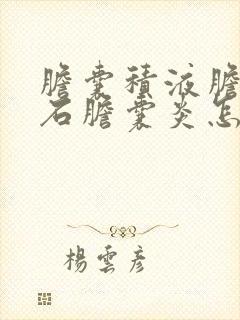 膽囊積液膽
石膽囊炎怎
楊雲彦